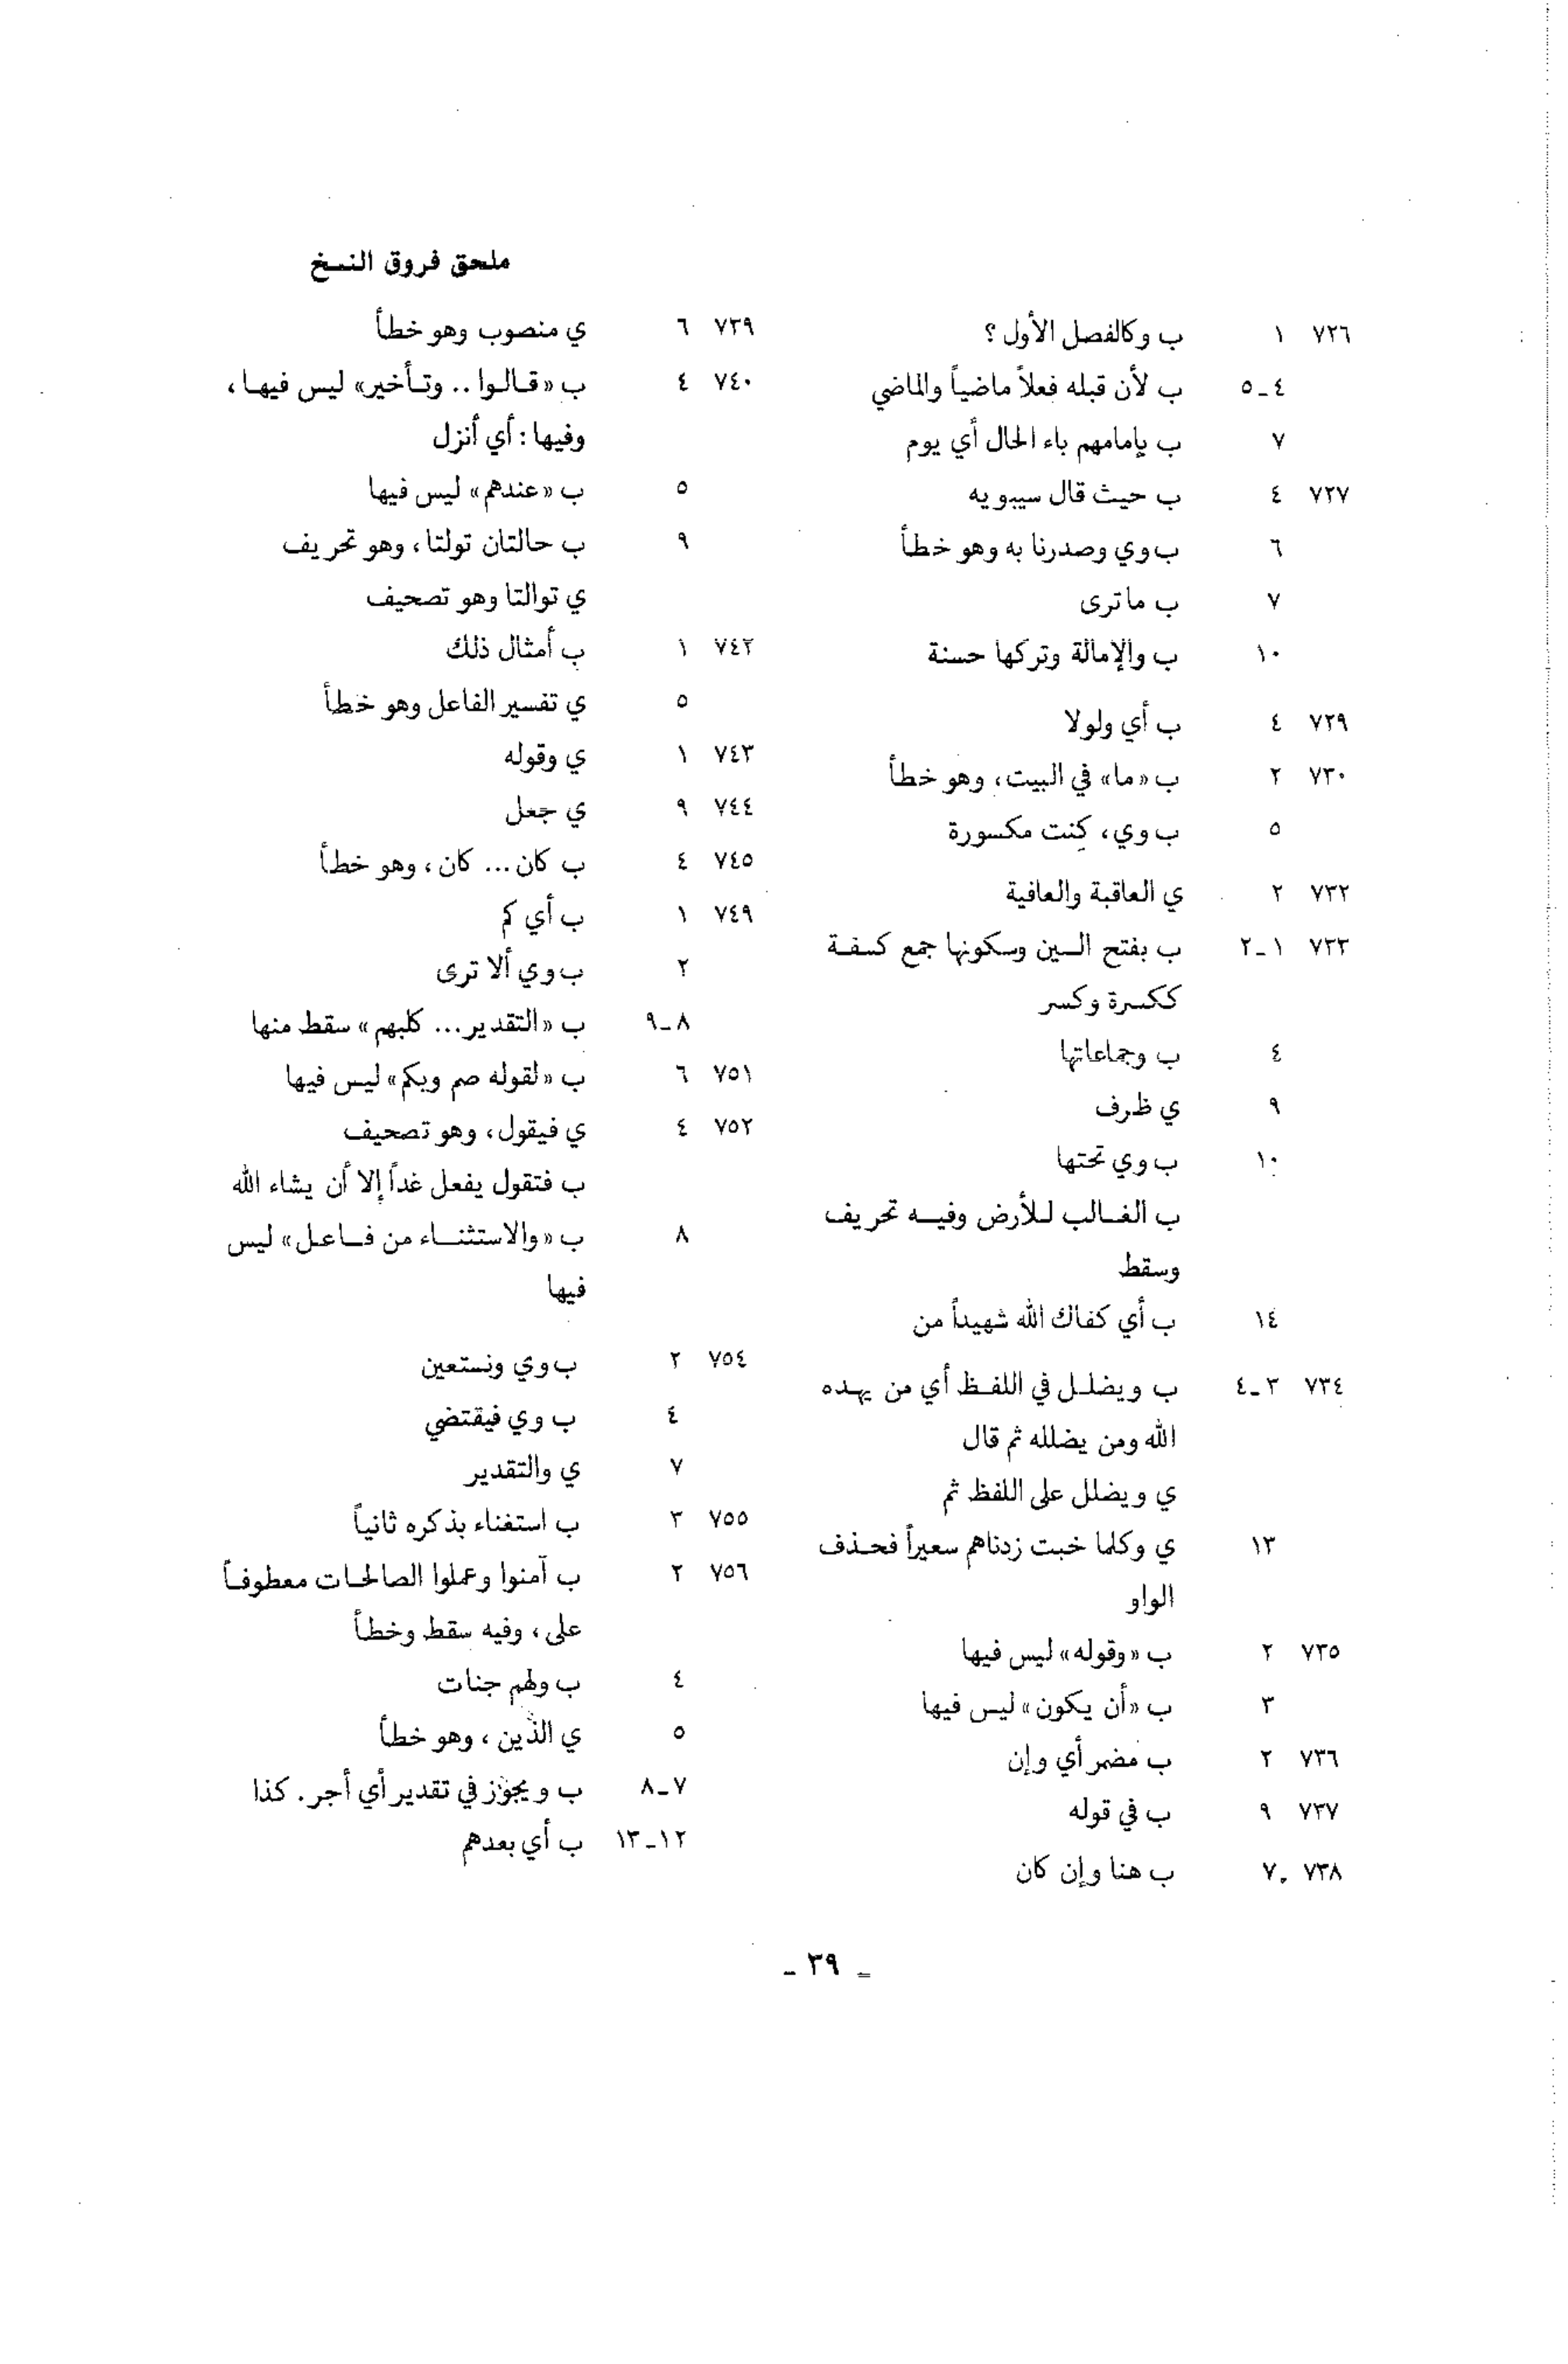 ملحق فروق النسخ
٧٢٦ ١ ب وكالفصل الأول ؟
٤ـ٥ ب لأن قبله فعلاً ماضياً والماضي
٧ ب بإمامهم باء الحال أي يوم
٧٢٧ ٤ ب حيث قال سيبويه
٦ ب وي وصدرنا به وهو خطأ
٧ ب ما ترى
١٠ ب والإمالة وتركها حسنة
٧٢٩ ٤ ب أي ولولا
٧٣٠ ٢ ب «ما» في البيت، وهو خطأ
٥ ب وي، كنت مكسورة
٧٣٢ ٢ ي العاقبة والعافية
٧٣٣ ١ـ٢ ب بفتح السين وسكونها جمع كسفة
ككسرة وكسر
٤ ب وجماعاتها
٩ ي ظرف
١٠ ب وي تحتها
ب الغالب للأرض وفيه تحريف
وسقط
١٤ ب أي كفاك الله شهيداً من
٧٣٤ ٣ـ٤ ب ويضلل في اللفظ أي من يهده
الله ومن يضلله ثم قال
ي ويضلل على اللفظ ثم
١٣ ي وكلما خبت زدناهم سعيراً فحذف
الواو
٧٣٥ ٢ ب «وقوله» ليس فيها
٣ ب «أن يكون» ليس فيها
٧٣٦ ٢ ب مضمر أي وإن
٧٣٧ ٩ ب في قوله
٧٣٨ ٧ ب هنا وإن كان
٧٣٩ ٦ ي منصوب وهو خطأ
٧٤٠ ٤ ب «قالوا .. وتأخير» ليس فيها،
وفيها : أي أنزل
٥ ب «عندهم» ليس فيها
٩ ب حالتان تولتا، وهو تحريف
ي توالتا وهو تصحيف
٧٤٢ ١ ب أمثال ذلك
٥ ي تفسير الفاعل وهو خطأ
٧٤٣ ١ ي وقوله
٧٤٤ ٩ ي جعل
٧٤٥ ٤ ب كان ... كان ، وهو خطأ
٧٤٩ ١ ب أي كم
٢ ب وي ألا ترى
٨ـ٩ ب «التقدير ... كلبهم» سقط منها
٧٥١ ٦ ب «لقوله صم وبكم» ليس فيها
٧٥٢ ٤ ي فيقول، وهو تصحيف
ب فتقول يفعل غداً إلا أن يشاء الله
٨ ب «والاستثناء من فاعل» ليس
فيها
٧٥٤ ٢ ب وي ونستعين
٤ ب وي فيقتضي
٧ ي والتقدير
٧٥٥ ٣ ب استغناء بذكره ثانياً
٧٥٦ ٢ ب آمنوا وعملوا الصالحات معطوفاً
على ، وفيه سقط وخطأ
٤ ب ولهم جنات
٥ ي الذين ، وهو خطأ
٧ـ٨ ب ويجوز في تقدير أي أجر . كذا
١٢ـ١٣ ب أي بعدهم
ـ ٣٩ ـ